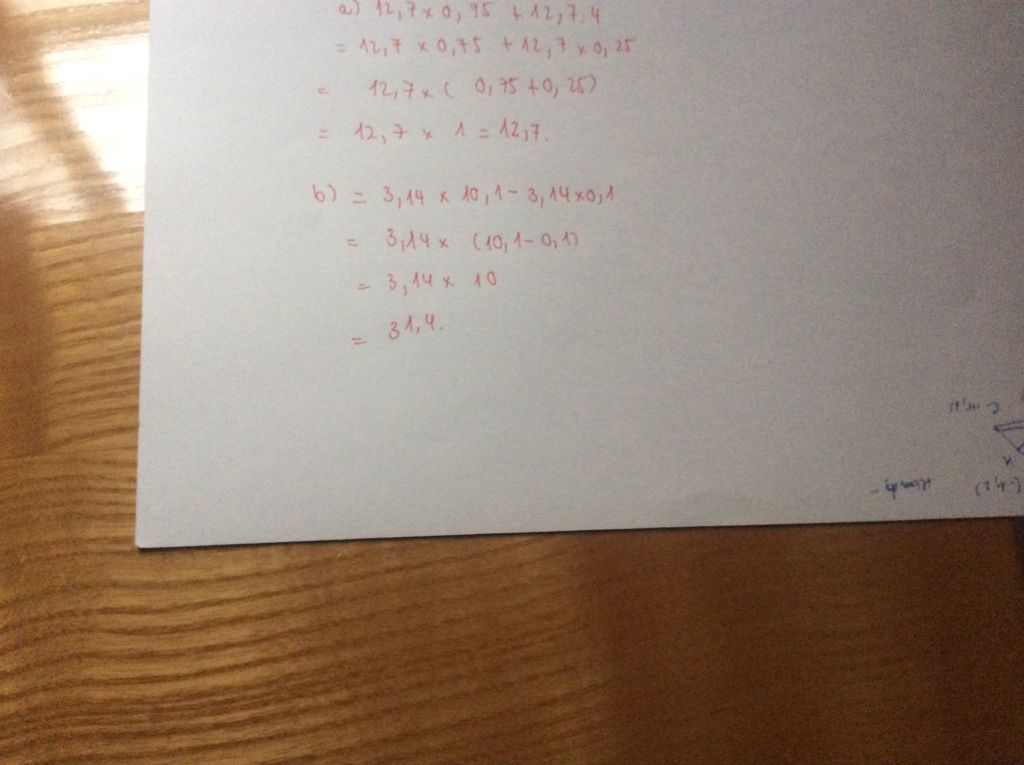 a) 12,7 x 0,75 + 12,7:4
= 12,7 x 0,75 + 12,7 x 0,25
= 12,7 x ( 0,75 + 0,25)
= 12,7 x 1 = 12,7.
b) = 3,14 x 10,1 - 3,14 x 0,1
= 3,14 x (10,1 - 0,1)
= 3,14 x 10
= 31,4.